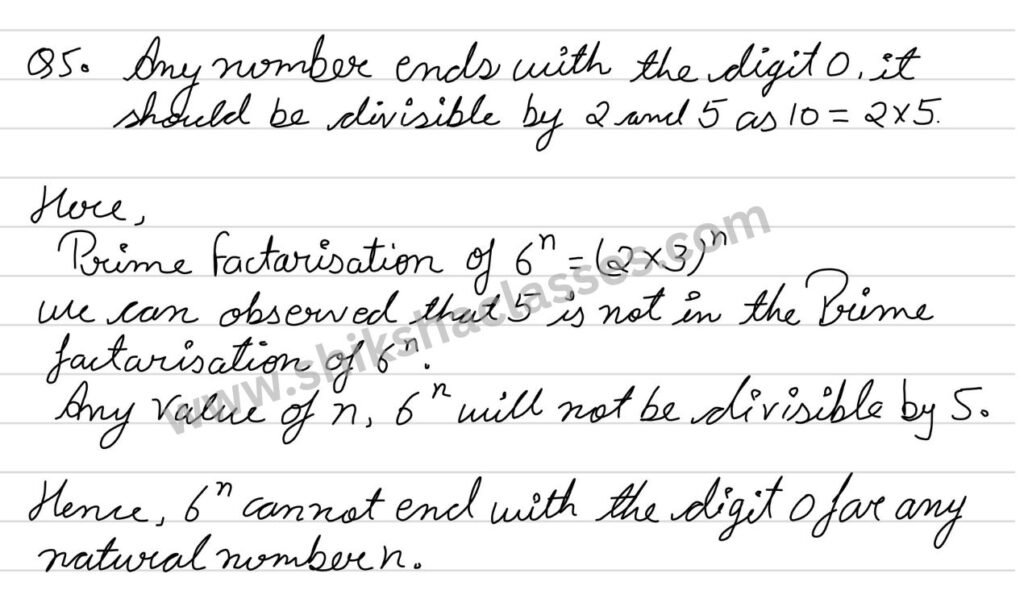 Q5. Any number ends with the digit 0, it
should be divisible by 2 and 5 as 10 = 2×5.
Here,
Prime factarisation of 6ⁿ = (2×3)ⁿ
we can observed that 5 is not in the Prime
factarisation of 6ⁿ.
Any value of n, 6ⁿ will not be divisible by 5.
Hence, 6ⁿ cannot end with the digit 0 for any
natural number n.
www.shikshaclasses.com